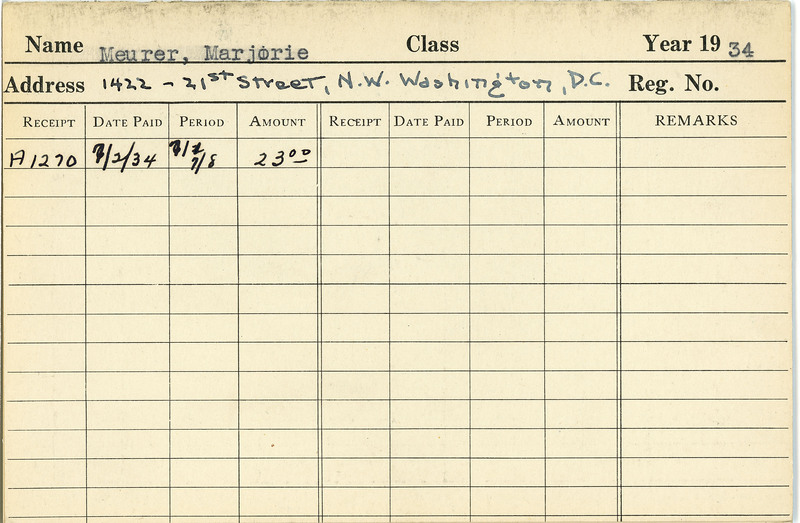 Name Meurer, Marjorie Class Year 19 34
Address 1422 - 21st Street, N.W. Washington, D.C. Reg. No.
RECEIPT DATE PAID PERIOD AMOUNT RECEIPT DATE PAID PERIOD AMOUNT REMARKS
A1270 7/2/34 7/2 23 00
7/8